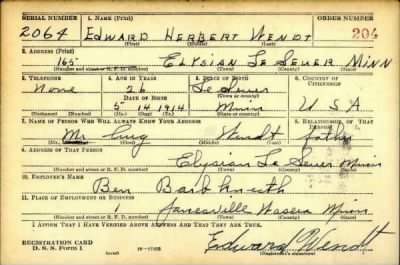 SERIAL NUMBER 1. NAME (Print) ORDER NUMBER
2064 EDWARD HERBERT WENDT 204
(First) (Middle) (Last)
2. ADDRESS (Print)
165 ELYSIAN LE SEUER MINN
(Number and street or R. F. D. number) (Town) (County) (State)
3. TELEPHONE 4. AGE IN YEARS 5. PLACE OF BIRTH 6. COUNTRY OF CITIZENSHIP
None 26 Le Seuer
DATE OF BIRTH (Town or county)
5 14 1914 Minn U S A
(Mo.) (Day) (Yr.) (State or country)
7. NAME OF PERSON WHO WILL ALWAYS KNOW YOUR ADDRESS 8. RELATIONSHIP OF THAT PERSON
Mr Aug Wendt father
(Mr., Mrs., Miss) (First) (Middle) (Last)
9. ADDRESS OF THAT PERSON
Elysian Le Seuer Minn
(Number and street or R. F. D. number) (Town) (County) (State)
10. EMPLOYER'S NAME
Ben Barbknecth
11. PLACE OF EMPLOYMENT OR BUSINESS
1 Janesville Waseca Minn
(Number and street or R. F. D. number) (Town) (County) (State)
I AFFIRM THAT I HAVE VERIFIED ABOVE ANSWERS AND THAT THEY ARE TRUE.
REGISTRATION CARD
D. S. S. Form 1 Edward Wendt
(Registrant's signature)